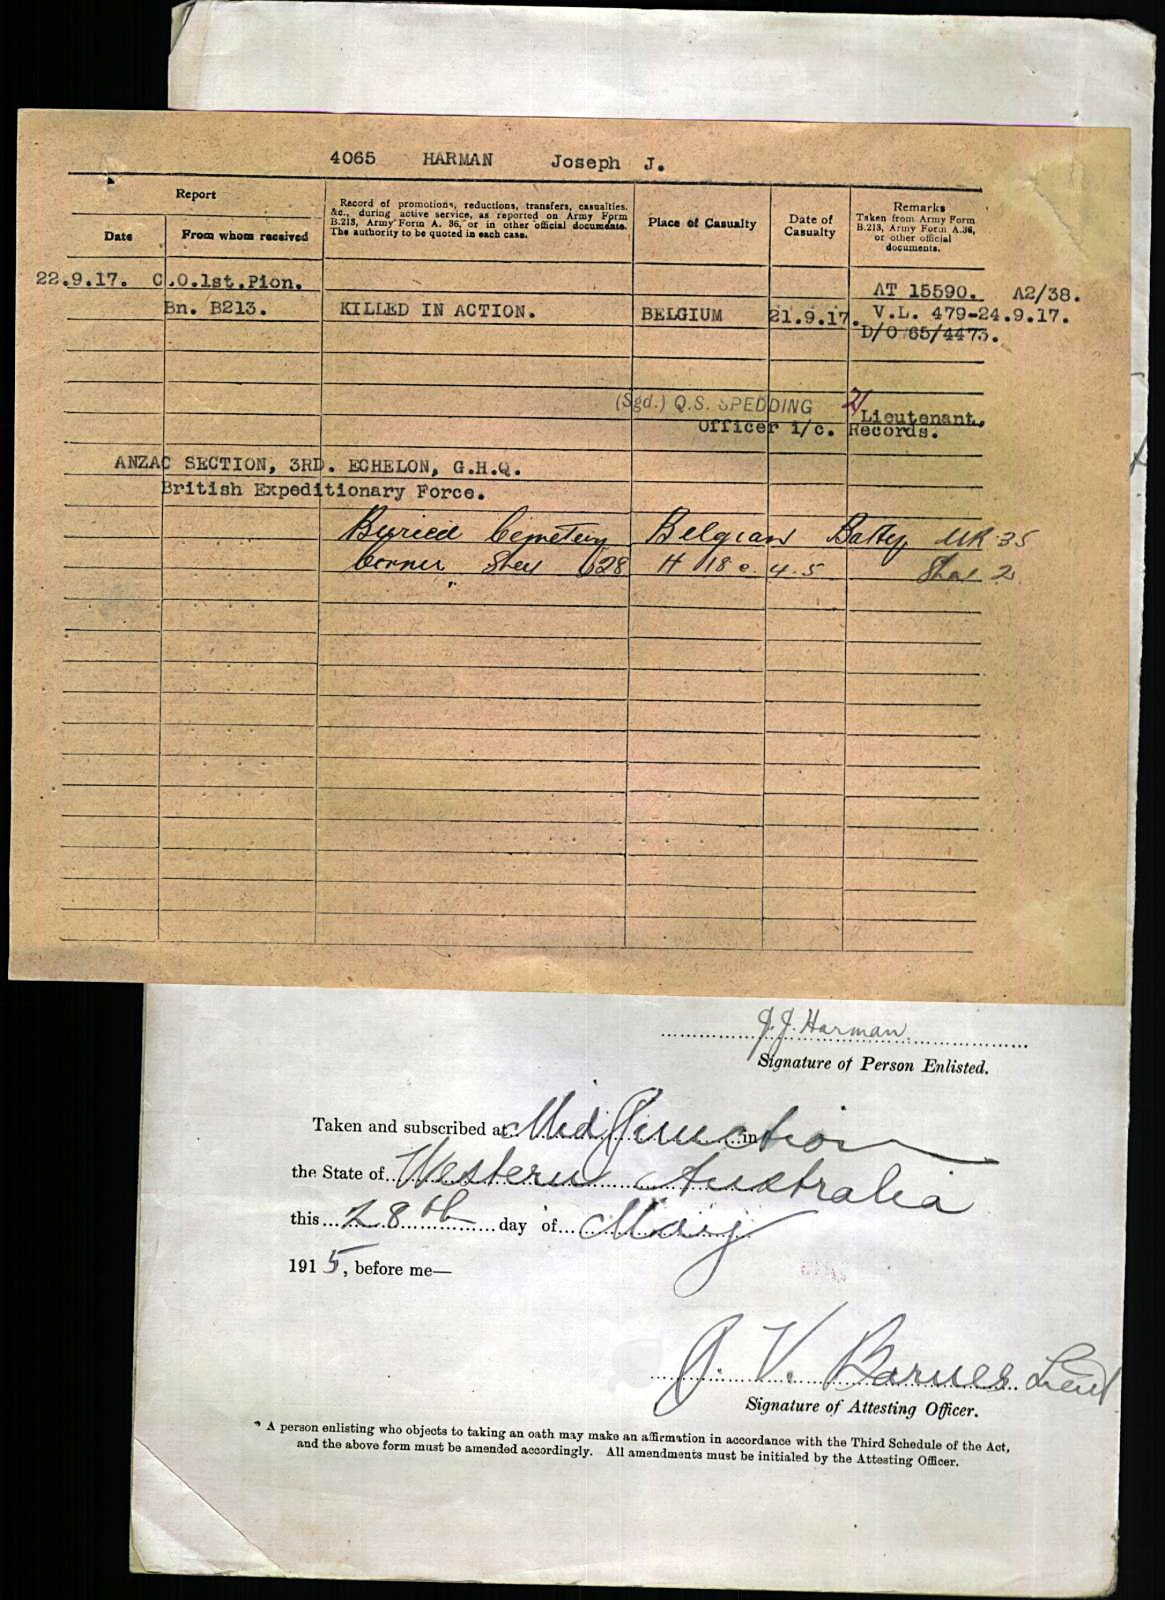 4065 HARMAN Joseph J.
Report
Date
From whom received
Record of promotions, reductions, transfers, casualties,
&c., during active service, as reported on Army Form
B.213, Army Form A. 36, or in other official documents.
The authority to be quoted in each case.
Place of Casualty
Date of
Casualty
Remarks
Taken from Army Form
B.213, Army Form A.36,
or other official
documents.
22.9.17. C.O.1st.Pion.
Bn. B213.
KILLED IN ACTION.
BELGIUM
21.9.17.
AT 15590. A2/38.
V.L. 479-24.9.17.
D/O 65/4473.
(Sgd.) Q.S. SPEDDING Lieutenant,
Officer i/c. Records.
ANZAC SECTION, 3RD. ECHELON, G.H.Q.
British Expeditionary Force.
Buried Cemetery Belgian Batty
Corner Sheet 28 H 18 c. 4. 5
J. J. Harman
Signature of Person Enlisted.
Taken and subscribed at Mid Junction in
the State of Western Australia
this 28th day of May
1915, before me—
J. V. Barnes Lieut
Signature of Attesting Officer.
* A person enlisting who objects to taking an oath may make an affirmation in accordance with the Third Schedule of the Act,
and the above form must be amended accordingly. All amendments must be initialed by the Attesting Officer.